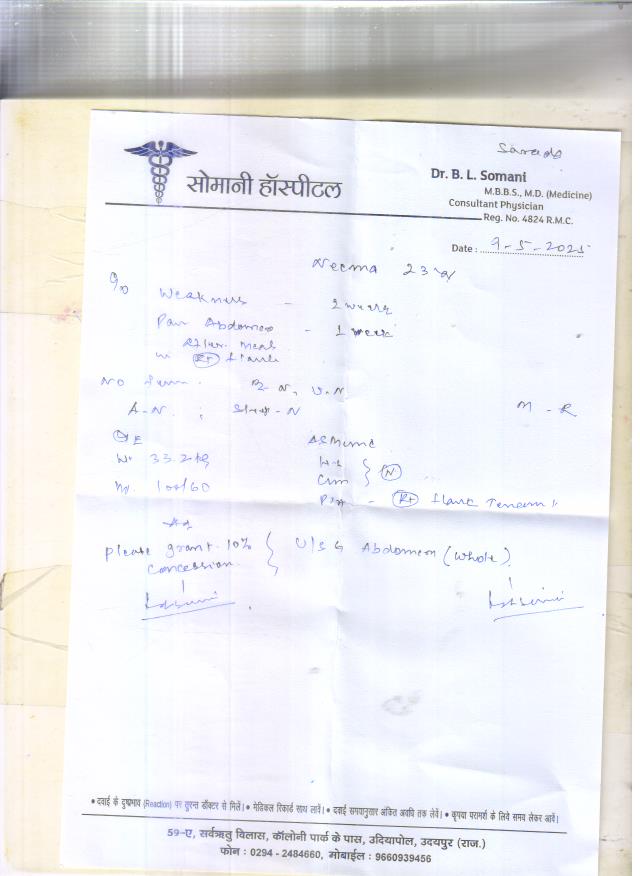 सोमानी हॉस्पीटल
Dr. B. L. Somani
M.B.B.S., M.D. (Medicine)
Consultant Physician
Reg. No. 4824 R.M.C.
Date : 9-5-2025
Neema 23
Weakness - 2 weeks
Pain Abdomen - 1 week
After meal
in Rt flank
NO
A-N. ; -N M - R
O/E
Wt 33.2 kg
100/60
P/A - Rt flank
Adv
Please grant 10% concession. } U/S G Abdomen (Whole).
• दवाई के दुष्प्रभाव (Reaction) पर तुरन्त डॉक्टर से मिलें। • मेडिकल रिकार्ड साथ लावें। • दवाई समयानुसार अंकित अवधि तक लेवें। • कृपया परामर्श के लिये समय लेकर आवें।
59-ए, सर्वऋतु विलास, कॉलोनी पार्क के पास, उदियापोल, उदयपुर (राज.)
फोन : 0294 - 2484660, मोबाईल : 9660939456